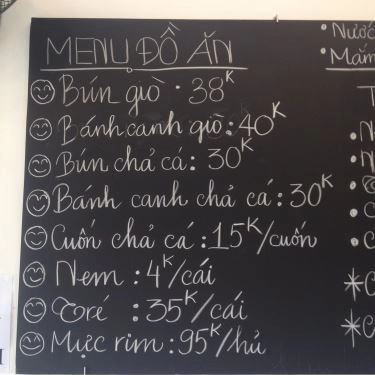 MENU ĐỒ ĂN
Bún giò · 38K
Bánh canh giò : 40K
Bún chả cá : 30K
Bánh canh chả cá : 30K
Cuốn chả cá : 15K/cuốn
Nem : 4K/cái
Tré : 35K/cái
Mực rim : 95K/hủ
• Nước
• Mắm